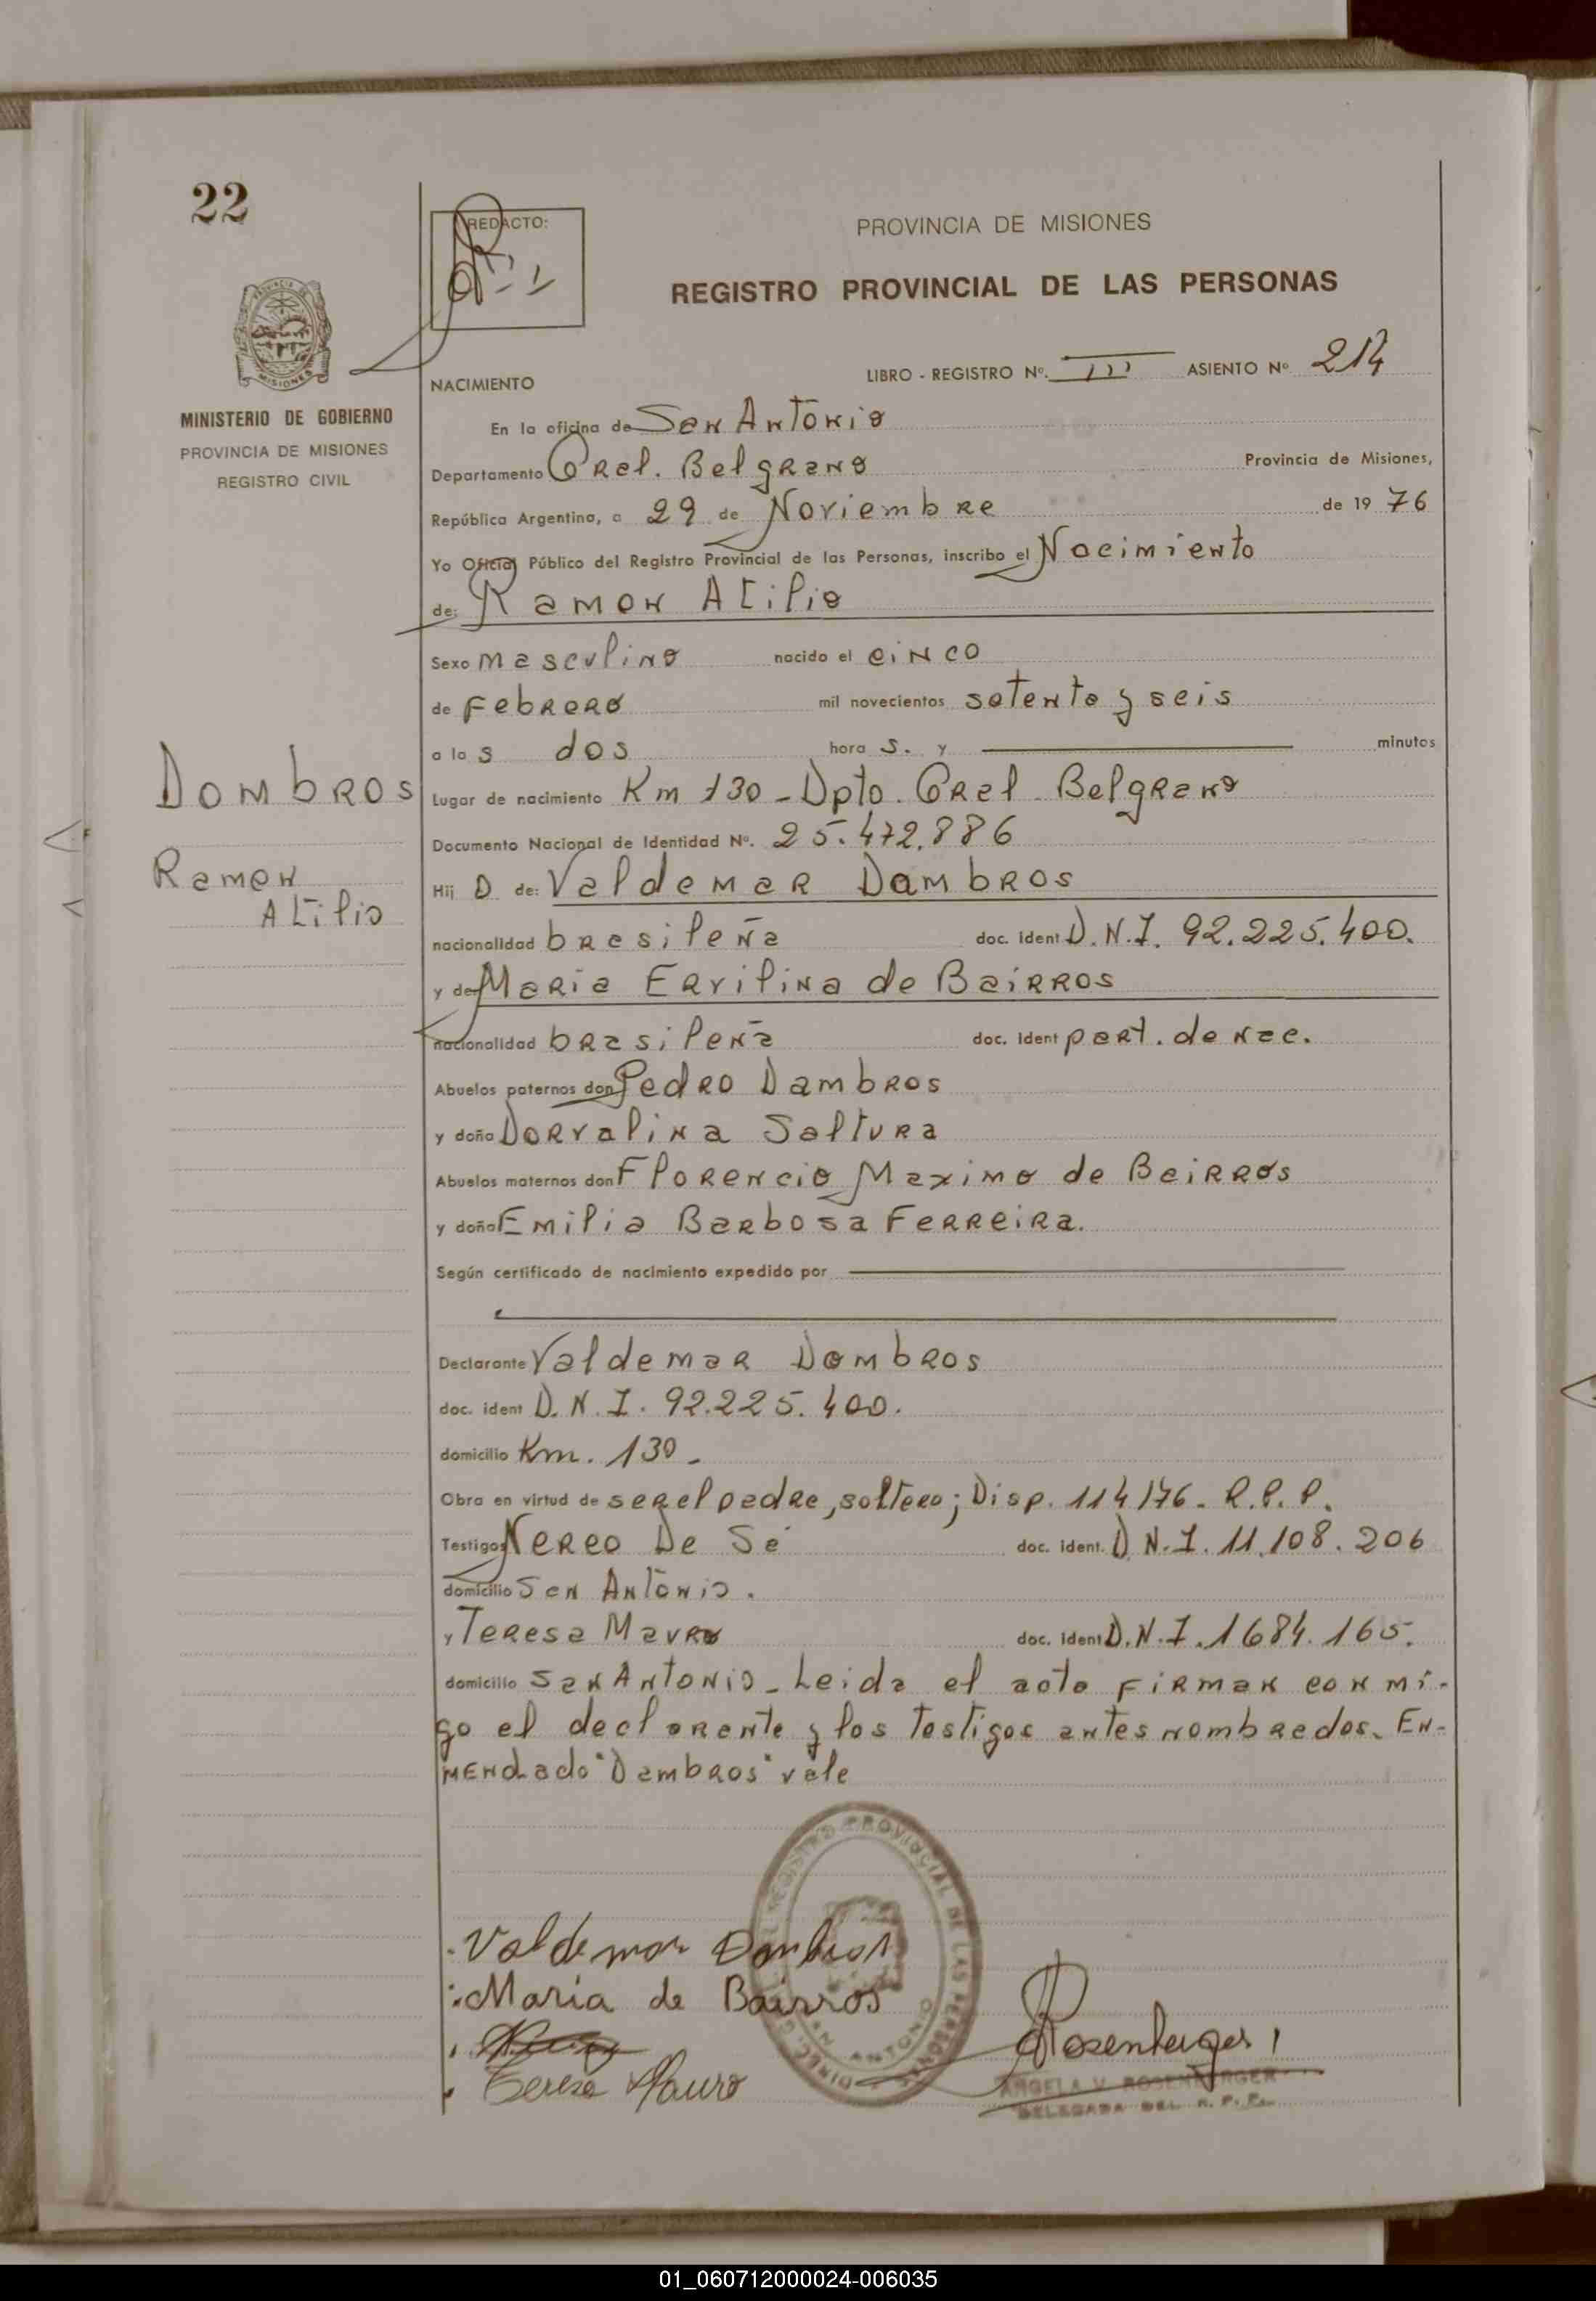 22
REDACTO:
PROVINCIA DE MISIONES
REGISTRO PROVINCIAL DE LAS PERSONAS
MISIONES
MINISTERIO DE GOBIERNO
PROVINCIA DE MISIONES
REGISTRO CIVIL
NACIMIENTO LIBRO - REGISTRO Nº. III ASIENTO Nº 214
En la oficina de San Antonio
Departamento Gral. Belgrano Provincia de Misiones,
República Argentina, a 29 de Noviembre de 19 76
Yo Oficial Público del Registro Provincial de las Personas, inscribo el Nacimiento
de: Ramon Atilio
Sexo masculino nacido el cinco
de Febrero mil novecientos setenta y seis
a las dos horas. y minutos
Dombros
Ramon
Atilio
Lugar de nacimiento Km 130 - Dpto. Gral Belgrano
Documento Nacional de Identidad Nº. 25.472.886
Hij o de: Valdemar Dambros
nacionalidad brasileña doc. ident D.N.I. 92.225.400.
y de Maria Ervilina de Bairros
nacionalidad brasileña doc. ident part. de nac.
Abuelos paternos don Pedro Dambros
y doña Dorvalina Saltura
Abuelos maternos don Florencio Maximo de Bairros
y doña Emilia Barbosa Ferreira.
Según certificado de nacimiento expedido por
Declarante Valdemar Dombros
doc. ident D.N.I. 92.225.400.
domicilio Km. 130.-
Obra en virtud de ser el padre, soltero; Disp. 114/76. R.P.P.
Testigos Nereo De Sá doc. ident. D.N.I. 11.108.206
domicilio San Antonio.
y Teresa Mauro doc. ident D.N.I. 1684.165.
domicilio San Antonio - Leida el acta firman conmi-
go el declarante y los testigos antes nombrados. En-
mendado "Dambros" vale
Valdemar Dambros
Maria de Bairros
Teresa Mauro
Rosenberger
ANGELA V. ROSENBERGER
DELEGADA DEL R. P. P.
REGISTRO PROVINCIAL DE LAS PERSONAS
SAN ANTONIO
01_060712000024-006035